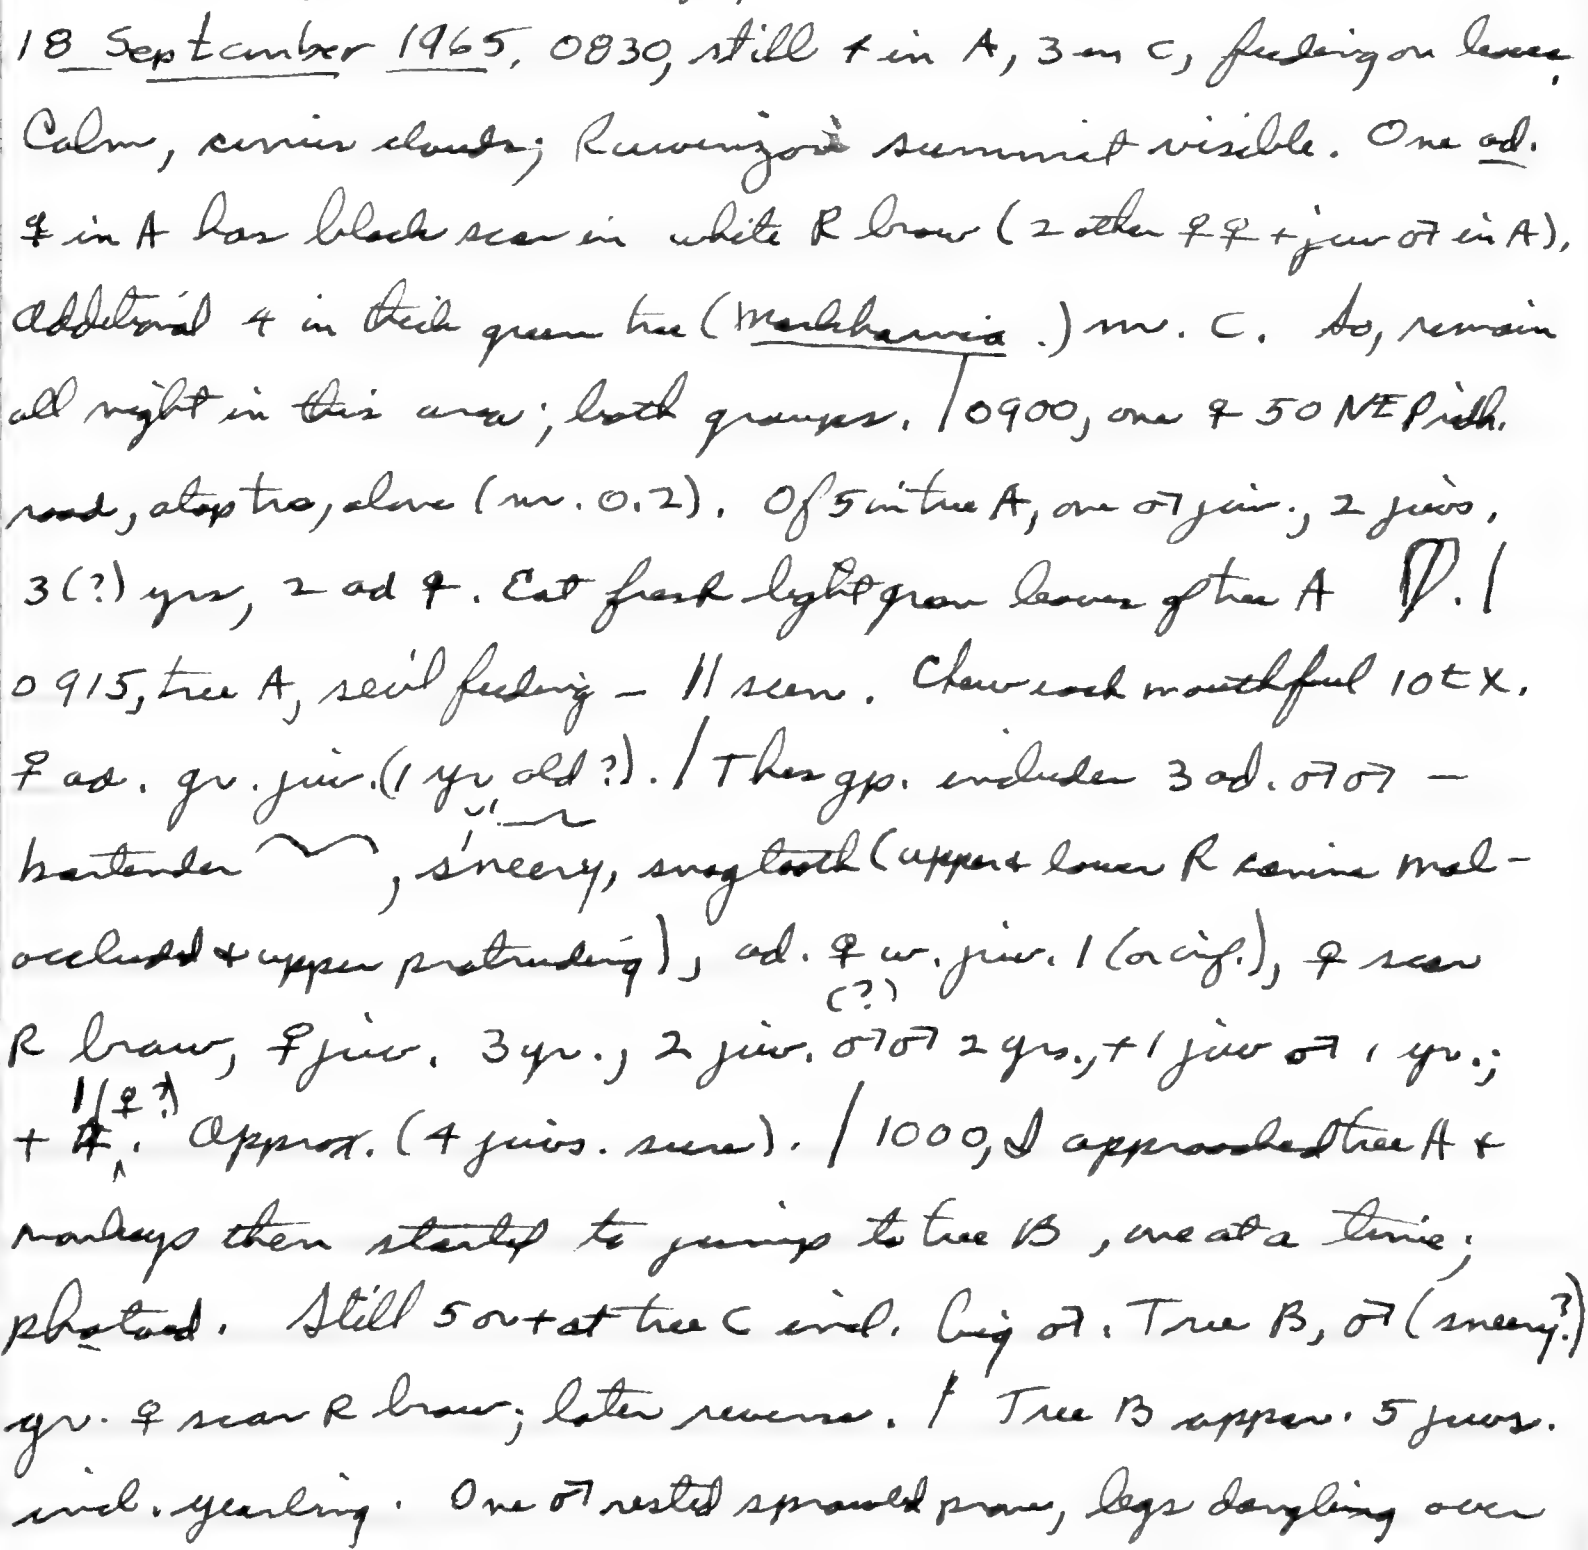 18 September 1965, 0830, still 4 in A, 3 in C, feeding on leaves.
Calm, cirrus clouds; Ruwenzori summit visible. One ad.
♀ in A has black scar in white R brow (2 other ♀♀ + juv ♂ in A).
Additional 4 in thick green tree (Markhamia .) nr. C. So, remain
all night in this area; both groups. / 0900, one ♀ 50 NE
road, atop tree, alone (nr. 0.2). Of 5 in tree A, one ♂ juv., 2 juvs,
3(?) yrs, 2 ad ♀. Eat fresh light green leaves of tree A . /
0915, tree A, sev'l feeding – 11 seen. Chew each mouthful 10± X.
♀ ad. gr. juv. (1 yr old?). / This gp. includes 3 ad. ♂♂ –
bartender , sneery, snagtooth (upper & lower R canine mal-
occluded & upper protruding), ad. ♀ w. juv. 1 (or inf.), ♀ scar
R brow, ♀ juv. 3 yr., 2 juv. ♂♂ (?) 2 yrs., + 1 juv ♂ 1 yr.;
+ 1 (♀?). Approx. (4 juvs. sure). / 1000, I approached tree A &
monkeys then started to jump to tree B, one at a time;
photoed. Still 5 or + at tree C incl. big ♂. Tree B, ♂ (sneery?)
gr. ♀ scar R brow; later reverse. / Tree B appar. 5 juvs.
incl. yearling. One ♂ rested sprawled prone, legs dangling over